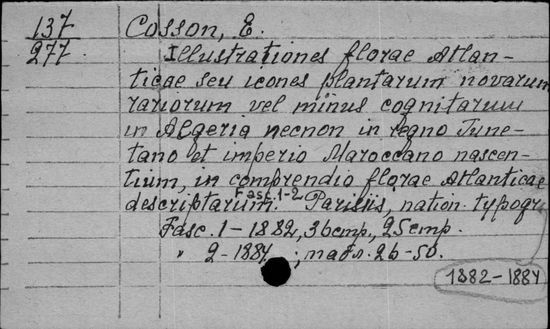 137 Cosson, E.
277. Illustrationes florae Atlan-
ticae seu icones plantarum novarum
rariorum vel minus cognitarum
in Algeria necnon in regno Tune-
tano et imperio Maroccano nascen-
tium, in comprendio florae Atlanticae
descriptarum. Fasc. 1-2 Parisiis, nation. typogr.
Fasc. 1-1882, 36 стр., 25 стр.
" 2-1884 ; табл. 26-50.
1882-1884